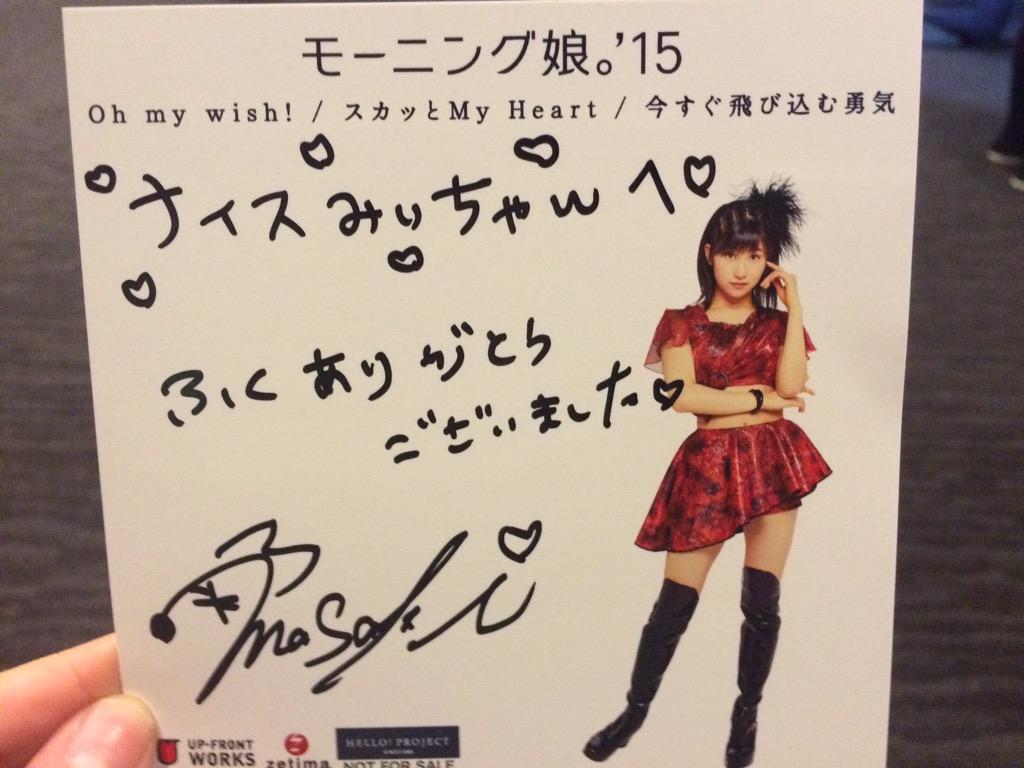 モーニング娘。'15
Oh my wish! / スカッとMy Heart / 今すぐ飛び込む勇気
ナイスみぃちゃんへ
ふくありがとう
ございました
masaki
UP-FRONT
WORKS
zetima
HELLO! PROJECT
NOT FOR SALE